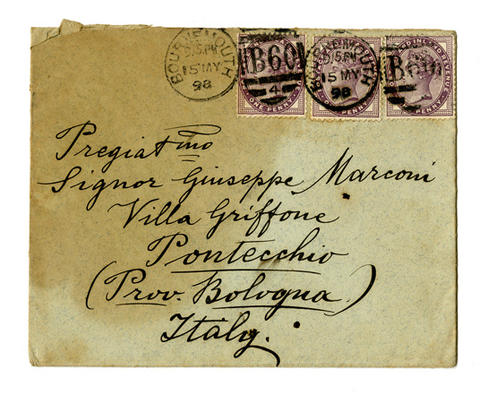 BOURNEMOUTH
5.15.PM
15 MY
98
B60
4
ONE PENNY
BOURNEMOUTH
15 MY
98
B60
ONE PENNY
Pregiatmo
Signor Giuseppe Marconi
Villa Griffone
Pontecchio
(Prov. Bologna)
Italy.